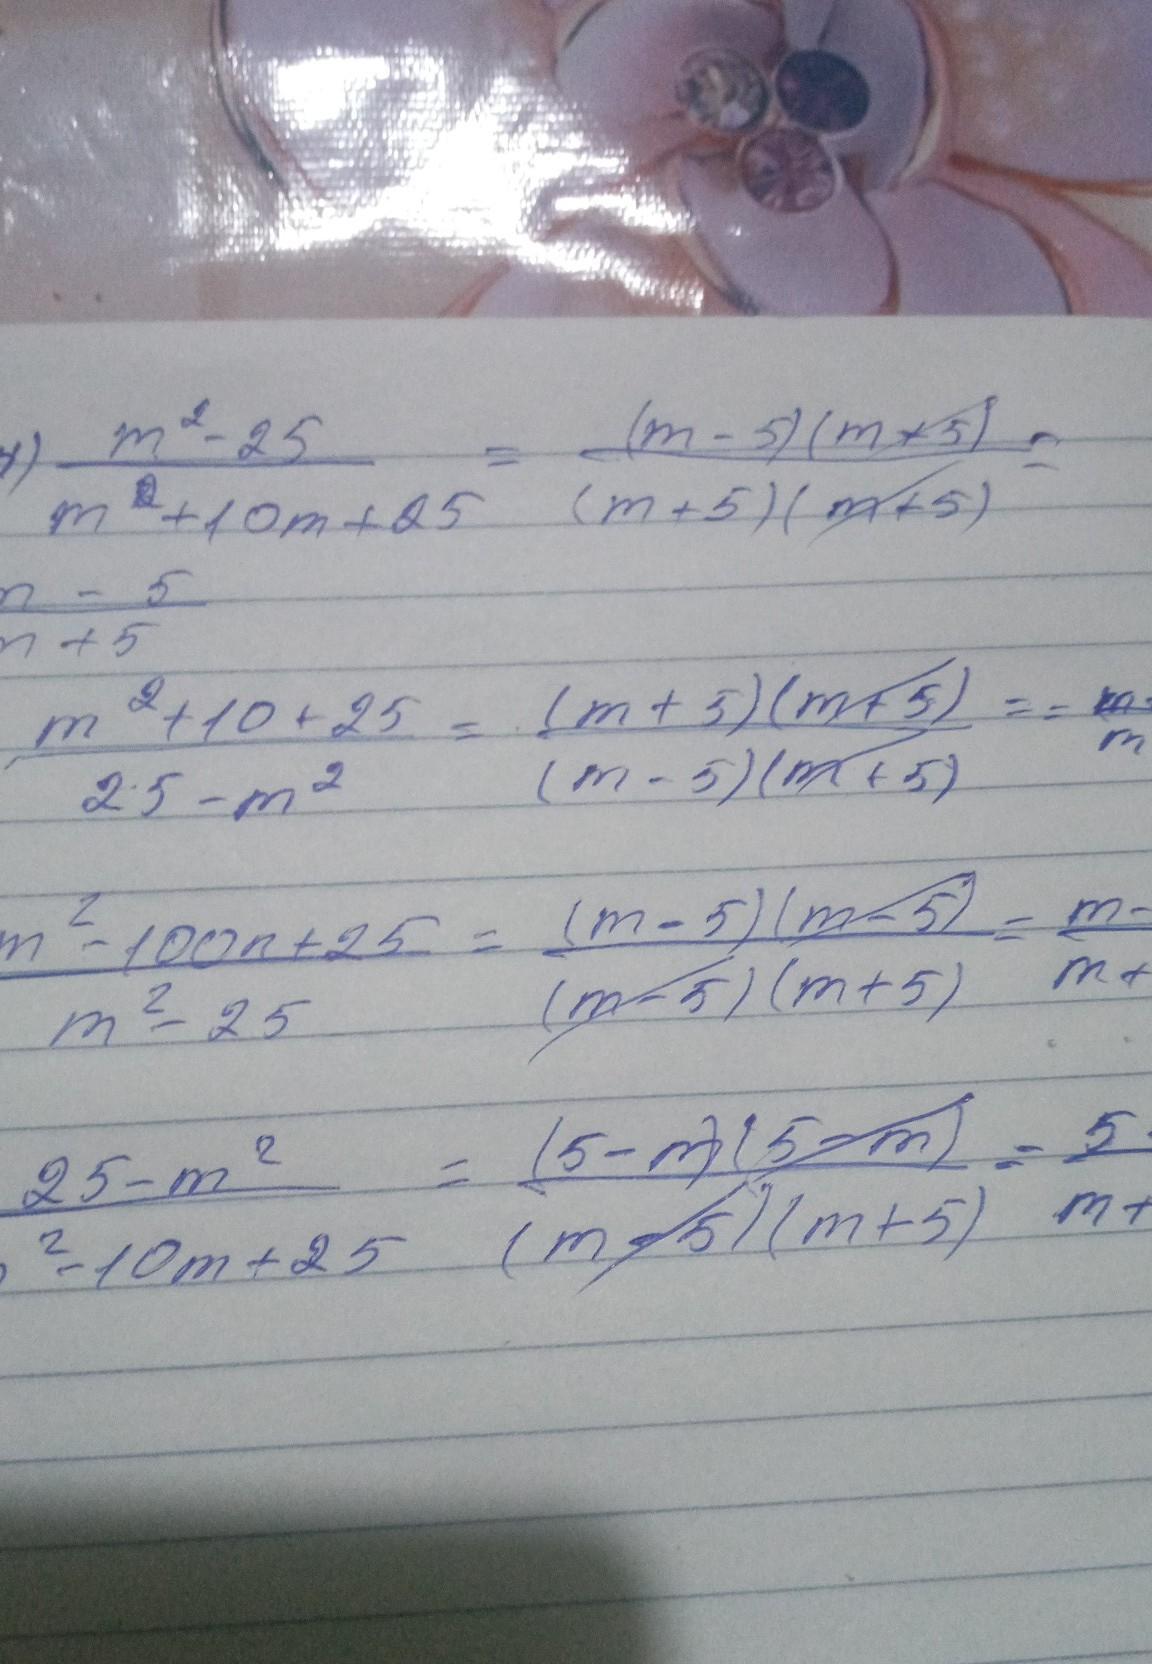 m² - 25 / m² + 10m + 25 = (m - 5)(m + 5) / (m + 5)(m + 5) =
m - 5 / m + 5
m² + 10 + 25 / 25 - m² = (m + 5)(m + 5) / (m - 5)(m + 5) = = m / m
m² - 100n + 25 / m² - 25 = (m - 5)(m - 5) / (m - 5)(m + 5) = m - / m +
25 - m² / ² - 10m + 25 = (5 - m)(5 - m) / (m - 5)(m + 5) = 5 - / m +